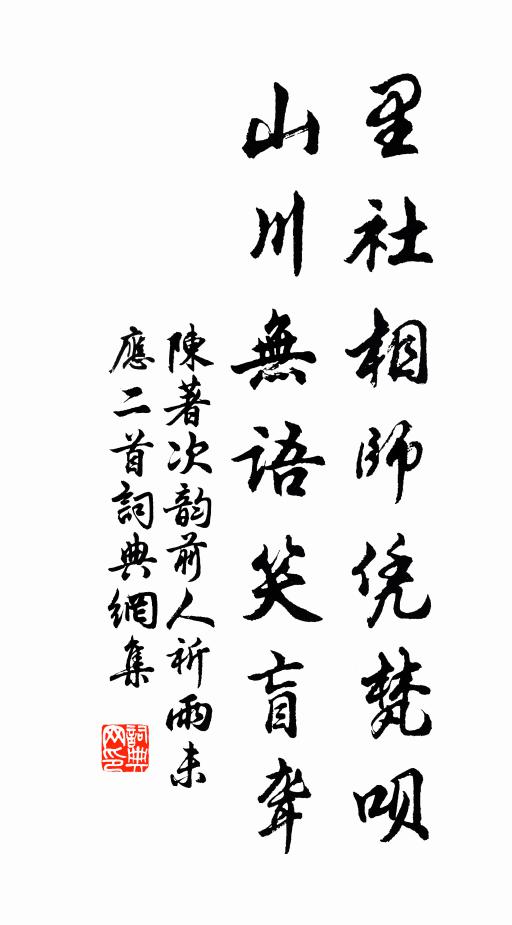 里社相師凭梵呗
山川無語笑盲聋
陳著次韵前人祈雨未
應二首詞典網集
詞典网印